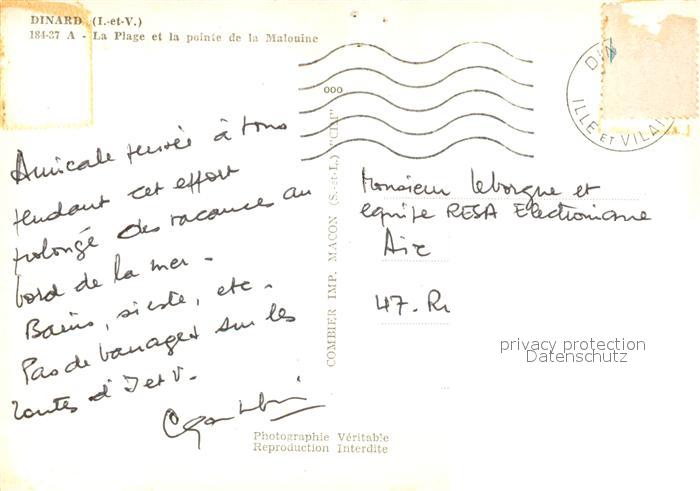 DINARD (I.-et-V.)
184-37 A - La Plage et la pointe de la Malouine
Amicale pensée à tous
pendant cet effort
prolongé des vacances au
bord de la mer -
Bains, sieste, etc -
Pas de barrages sur les
routes d'I et V.
Photographie Véritable
Reproduction Interdite
COMBIER IMP. MACON (S.-et-L.) "CIM"
ILLE ET VILAI
Monsieur Leborgne et
equipe RESA Electronique
Air
47. R
privacy protection
Datenschutz